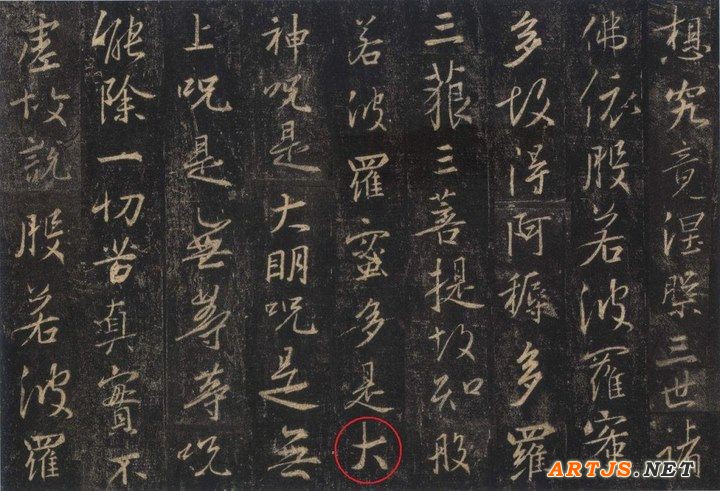 想究竟涅槃三世諸
佛依般若波羅蜜
多故得阿耨多羅
三藐三菩提故知般
若波羅蜜多是大
神呪是大明呪是無
上呪是無等等呪
能除一切苦真實不
虛故説般若波羅
ARTJS.NET